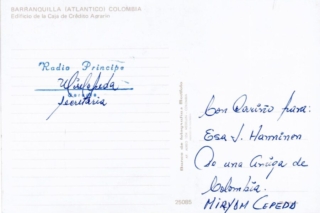 BARRANQUILLA (ATLANTICO) COLOMBIA
Edificio de la Caja de Crédito Agrario
Radio Príncipe
Secretaria
Con Cariño para:
Esa J. Hanninen
De una Amiga de
Colombia.
MIRYAM CEPEDA